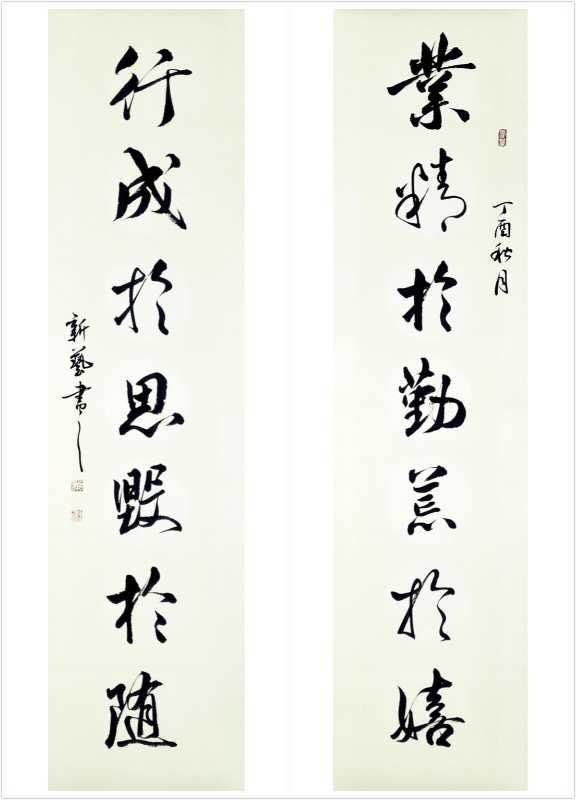 業精於勤荒於嬉
丁酉秋月
行成於思毀於随
新藝書之